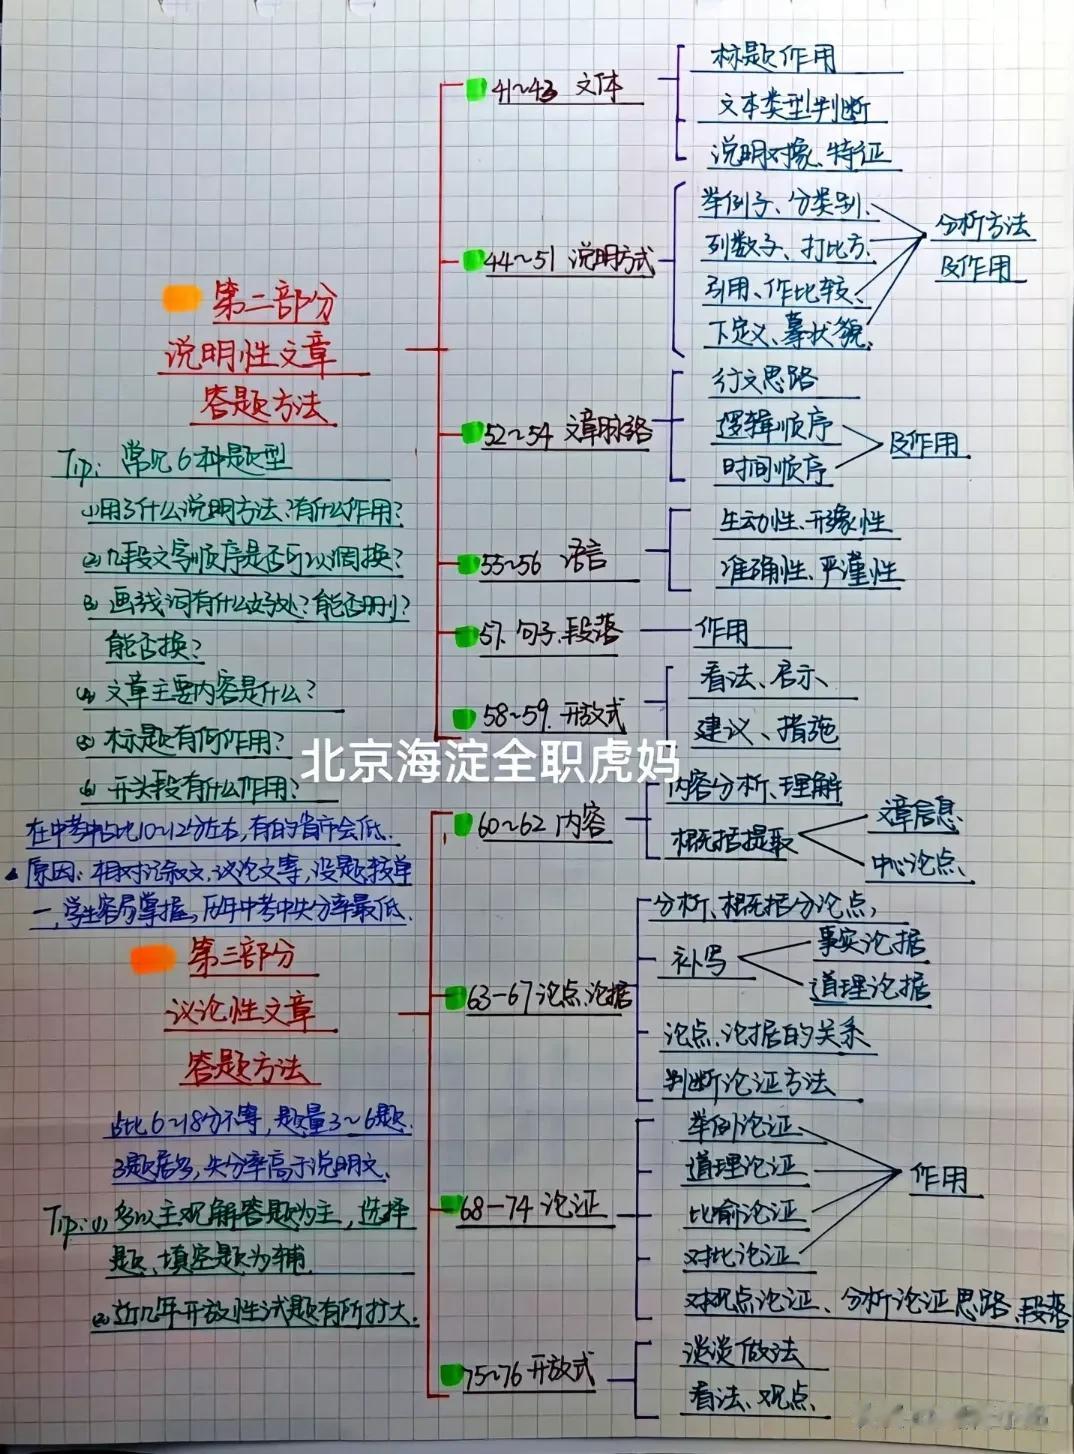 第二部分
说明性文章
答题方法
Tip: 常见6种题型
①用了什么说明方法?有什么作用?
②几段文字顺序是否可以调换?
③画线词有什么好处?能否删?
能否换?
④文章主要内容是什么?
⑤标题有何作用?
⑥开头段有什么作用?
在中考中占比10~12分左右,有的省市会低.
原因:相对记叙文,议论文等,没题较单
一,学生容易掌握,历年中考中失分率最低.
41~43 文体
标题作用
文本类型判断
说明对象、特征
44~51 说明方式
举例子、分类别、
列数字、打比方、
引用、作比较、
下定义、摹状貌,
分析方法
及作用
52~54 文章脉络
行文思路
逻辑顺序
时间顺序
及作用
55~56 语言
生动性、形象性
准确性、严谨性
57. 句子、段落
作用
58~59. 开放式
看法、启示、
建议、措施
北京海淀全职虎妈
第三部分
议论性文章
答题方法
占比6~18分不等,题量3~6题.
3题居多,失分率高于说明文.
Tip: ①多以主观解答题为主,选择
题、填空题为辅.
②近几年开放性试题有所扩大.
60~62 内容
内容分析、理解
概括提取
文章信息
中心论点、
63-67 论点、论据
分析、概括分论点,
补写
事实论据
道理论据
论点、论据的关系
判断论证方法
68-74 论证
举例论证
道理论证
比喻论证
对比论证
作用
对观点论证、分析论证思路、段落
75~76 开放式
谈谈做法
看法、观点.